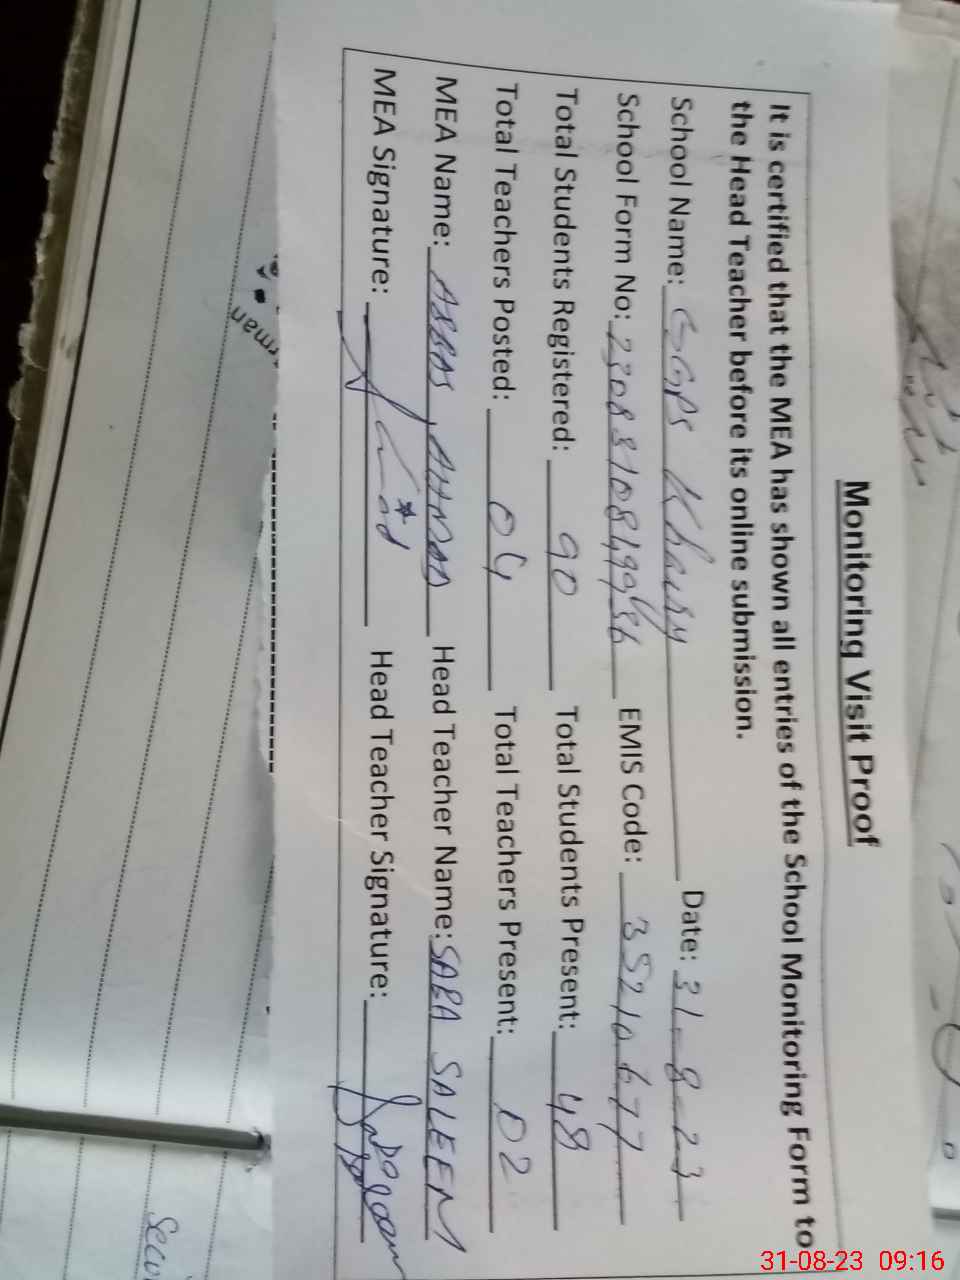 Monitoring Visit Proof
It is certified that the MEA has shown all entries of the School Monitoring Form to
the Head Teacher before its online submission.
School Name: GGPS Date: 31-8-23
School Form No: EMIS Code: 35210677
Total Students Registered: 90 Total Students Present: 48
Total Teachers Posted: 04 Total Teachers Present: 02
MEA Name: ABBAS AHMAD Head Teacher Name: SABA SALEEM
MEA Signature: Head Teacher Signature:
rman
31-08-23 09:16